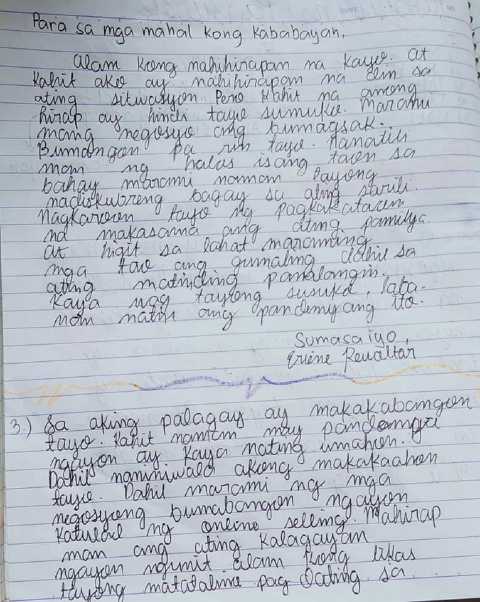 Para sa mga mahal kong kababayan,
Alam kong nahihirapan na kayo. at
Kahit ako ay nahihirapan na din sa
ating sitwasyon Pero Kahit na anong
hirap ay hindi tayo sumuko. Marami
mang negosyo ang bumagsak.
Bumangon pa rin tayo. Nanatili
man ng halos isang taon sa
bahay marami naman tayong
nadiskubreng bagay sa ating sarili.
Nagkaroon tayo ng pagkakataon
na makasama ang ating pamilya
at higit sa lahat maraming
mga tao ang gumaling dahil sa
ating matinding panalangin.
Kaya wag tayong susuko, laba-
nan natin ang pandemyang ito.
Sumasaiyo,
3.) Sa aking palagay ay makakabangon
tayo. Kahit naman may pandemya
ngayon ay kaya nating umahon.
Dahil naniniwala akong makakaahon
tayo. Dahil marami ng mga
negosyong bumabangon ngayon
katulad ng online selling. Mahirap
man ang ating kalagayan
ngayon ngunit alam kong likas
tayong matatalino pag dating sa